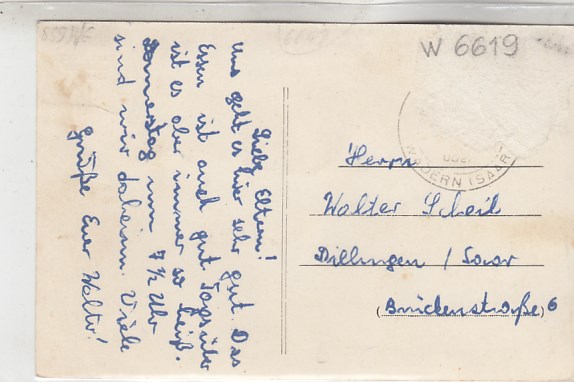 Liebe Eltern!
Uns geht es hier sehr gut. Das
Essen ist auch gut. Tagsüber
ist es aber immer so heiß.
Donnerstag um 7 1/2 Uhr
sind wir daheim. Viele
Grüße Euer Walter!
W 6619
WADERN (SAAR)
Herrn
Walter Scheit
Dillingen / Saar
(Brückenstraße) 6